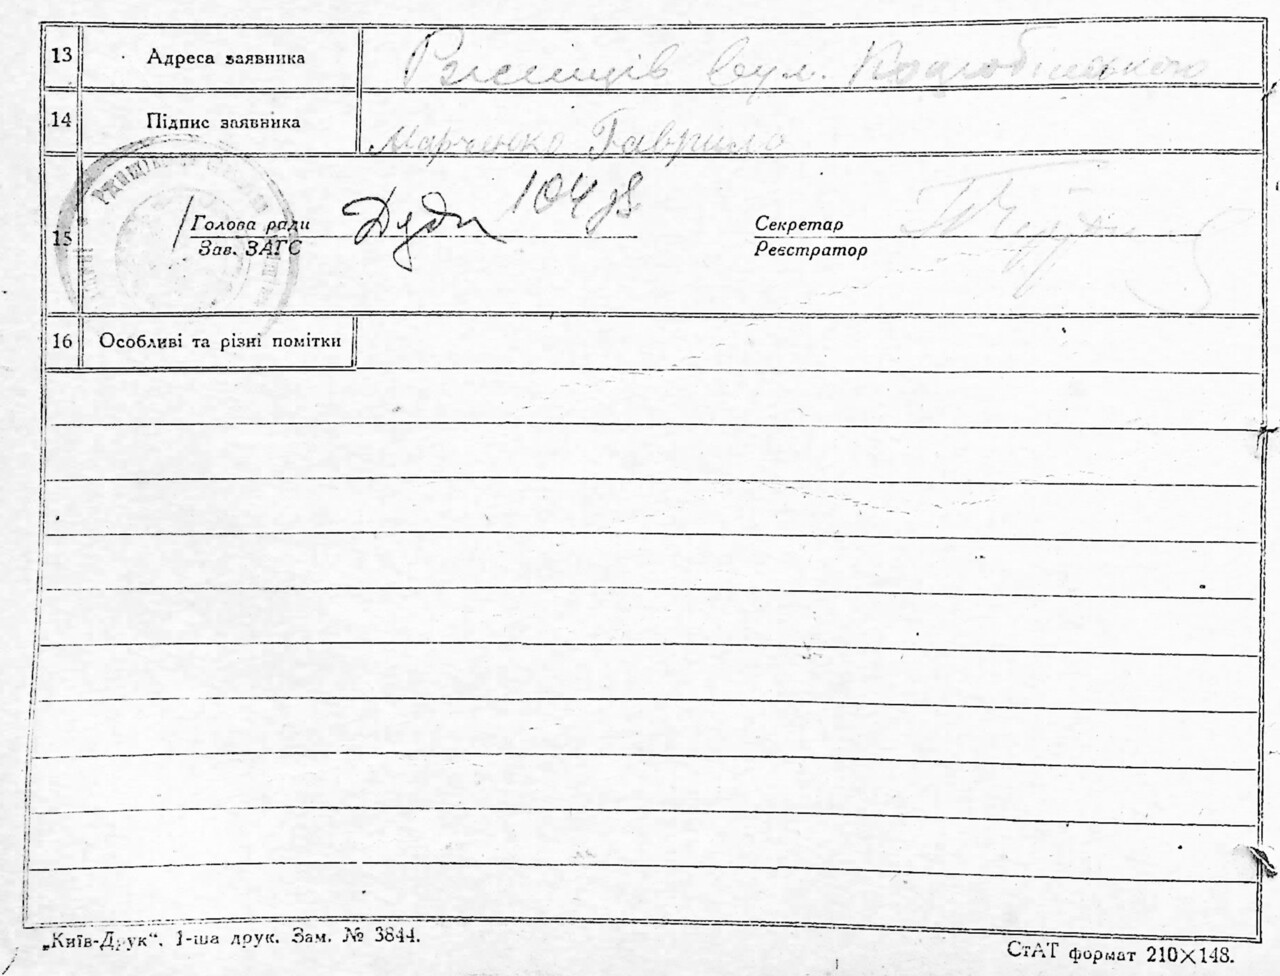 13 Адреса заявника Ржищів вул. Коцюбінського
14 Підпис заявника Марченко Гаврило
15 Голова ради Секретар
Зав. ЗАГС Реєстратор
16 Особливі та різні помітки
„Київ-Друк“. 1-ша друк. Зам. № 3844.
СтАТ формат 210×148.